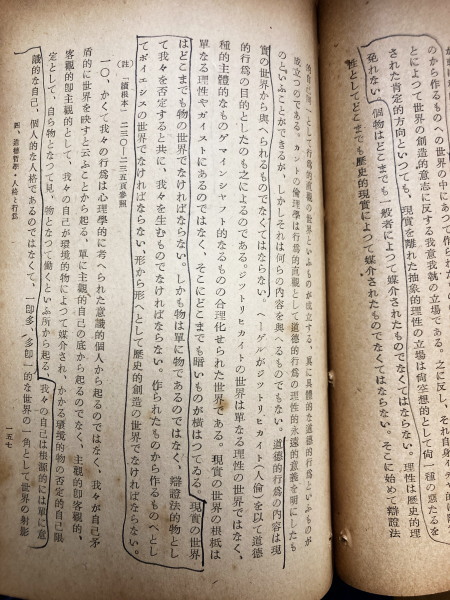 のから作るものへの世界の中にあつて作られた
とによつて世界の創造的意志に反する我意我執の立場である。之に反し、それ自身
された肯定的方向といつても、現實を離れた抽象的理性の立場は尙空想的として尙一種の惡たるを
免れない。個物はどこまでも一般者によつて媒介されたものでなくてはならない。理性は歷史的理
性としてどこまでも歷史的現實によつて媒介されたものでなくてはならない。そこに始めて辯證法
的自己限定として行爲的直觀の世界といふものが成立する、眞に具體的な道德的行爲といふものが
成立つのである。カントの倫理學は行爲的直觀として道德的行爲の理性的永遠的意義を明にしたも
のといふことができるが、しかしそれは何らの內容を與へるものでない。道德的行爲の內容は現
實の世界から與へられるものでなくてはならない。ヘーゲルがジツトリヒカイト(人倫)を以て道德
的行爲の目的としたのも之によるのである。ジツトリヒカイトの世界は單なる理性の世界ではなく、
種的主體的なものゲマインシヤフト的なるものの合理化せられた世界である。現實の世界の根柢は
單なる理性やガイストにあるのではなく、そこにどこまでも暗いものが橫はつてゐる。現實の世界
はどこまでも物の世界でなければならない。しかも物は單に物であるのではなく、辯證法的物とし
て我々を否定すると共に、我々を生むものでなければならない。作られたものから作るものへとし
てポイエシスの世界でなければならない、形から形へとして歷史的創造の世界でなければならない。
(註) 「讀根本」二三〇-二三五頁參照
一〇、かくて我々の行爲は心理學的に考へられた意識的個人から起るのではなく、我々が自己矛
盾的に世界を映すと云ふことから起る、單に主觀的自己の底から起るのでなく、主觀的卽客觀的、
客觀的卽主觀的として、我々の自己が環境的物によつて媒介され、かかる環境的物の否定的自己限
定として、自ら物となつて見、物となつて働くといふ所から起る、我々の自己は根源的には單に意
識的な自己、個人的な人格であるのではなくて、一卽多、多卽一的な世界の一角として世界の射影
四、道德哲學・人格と行爲
一五七